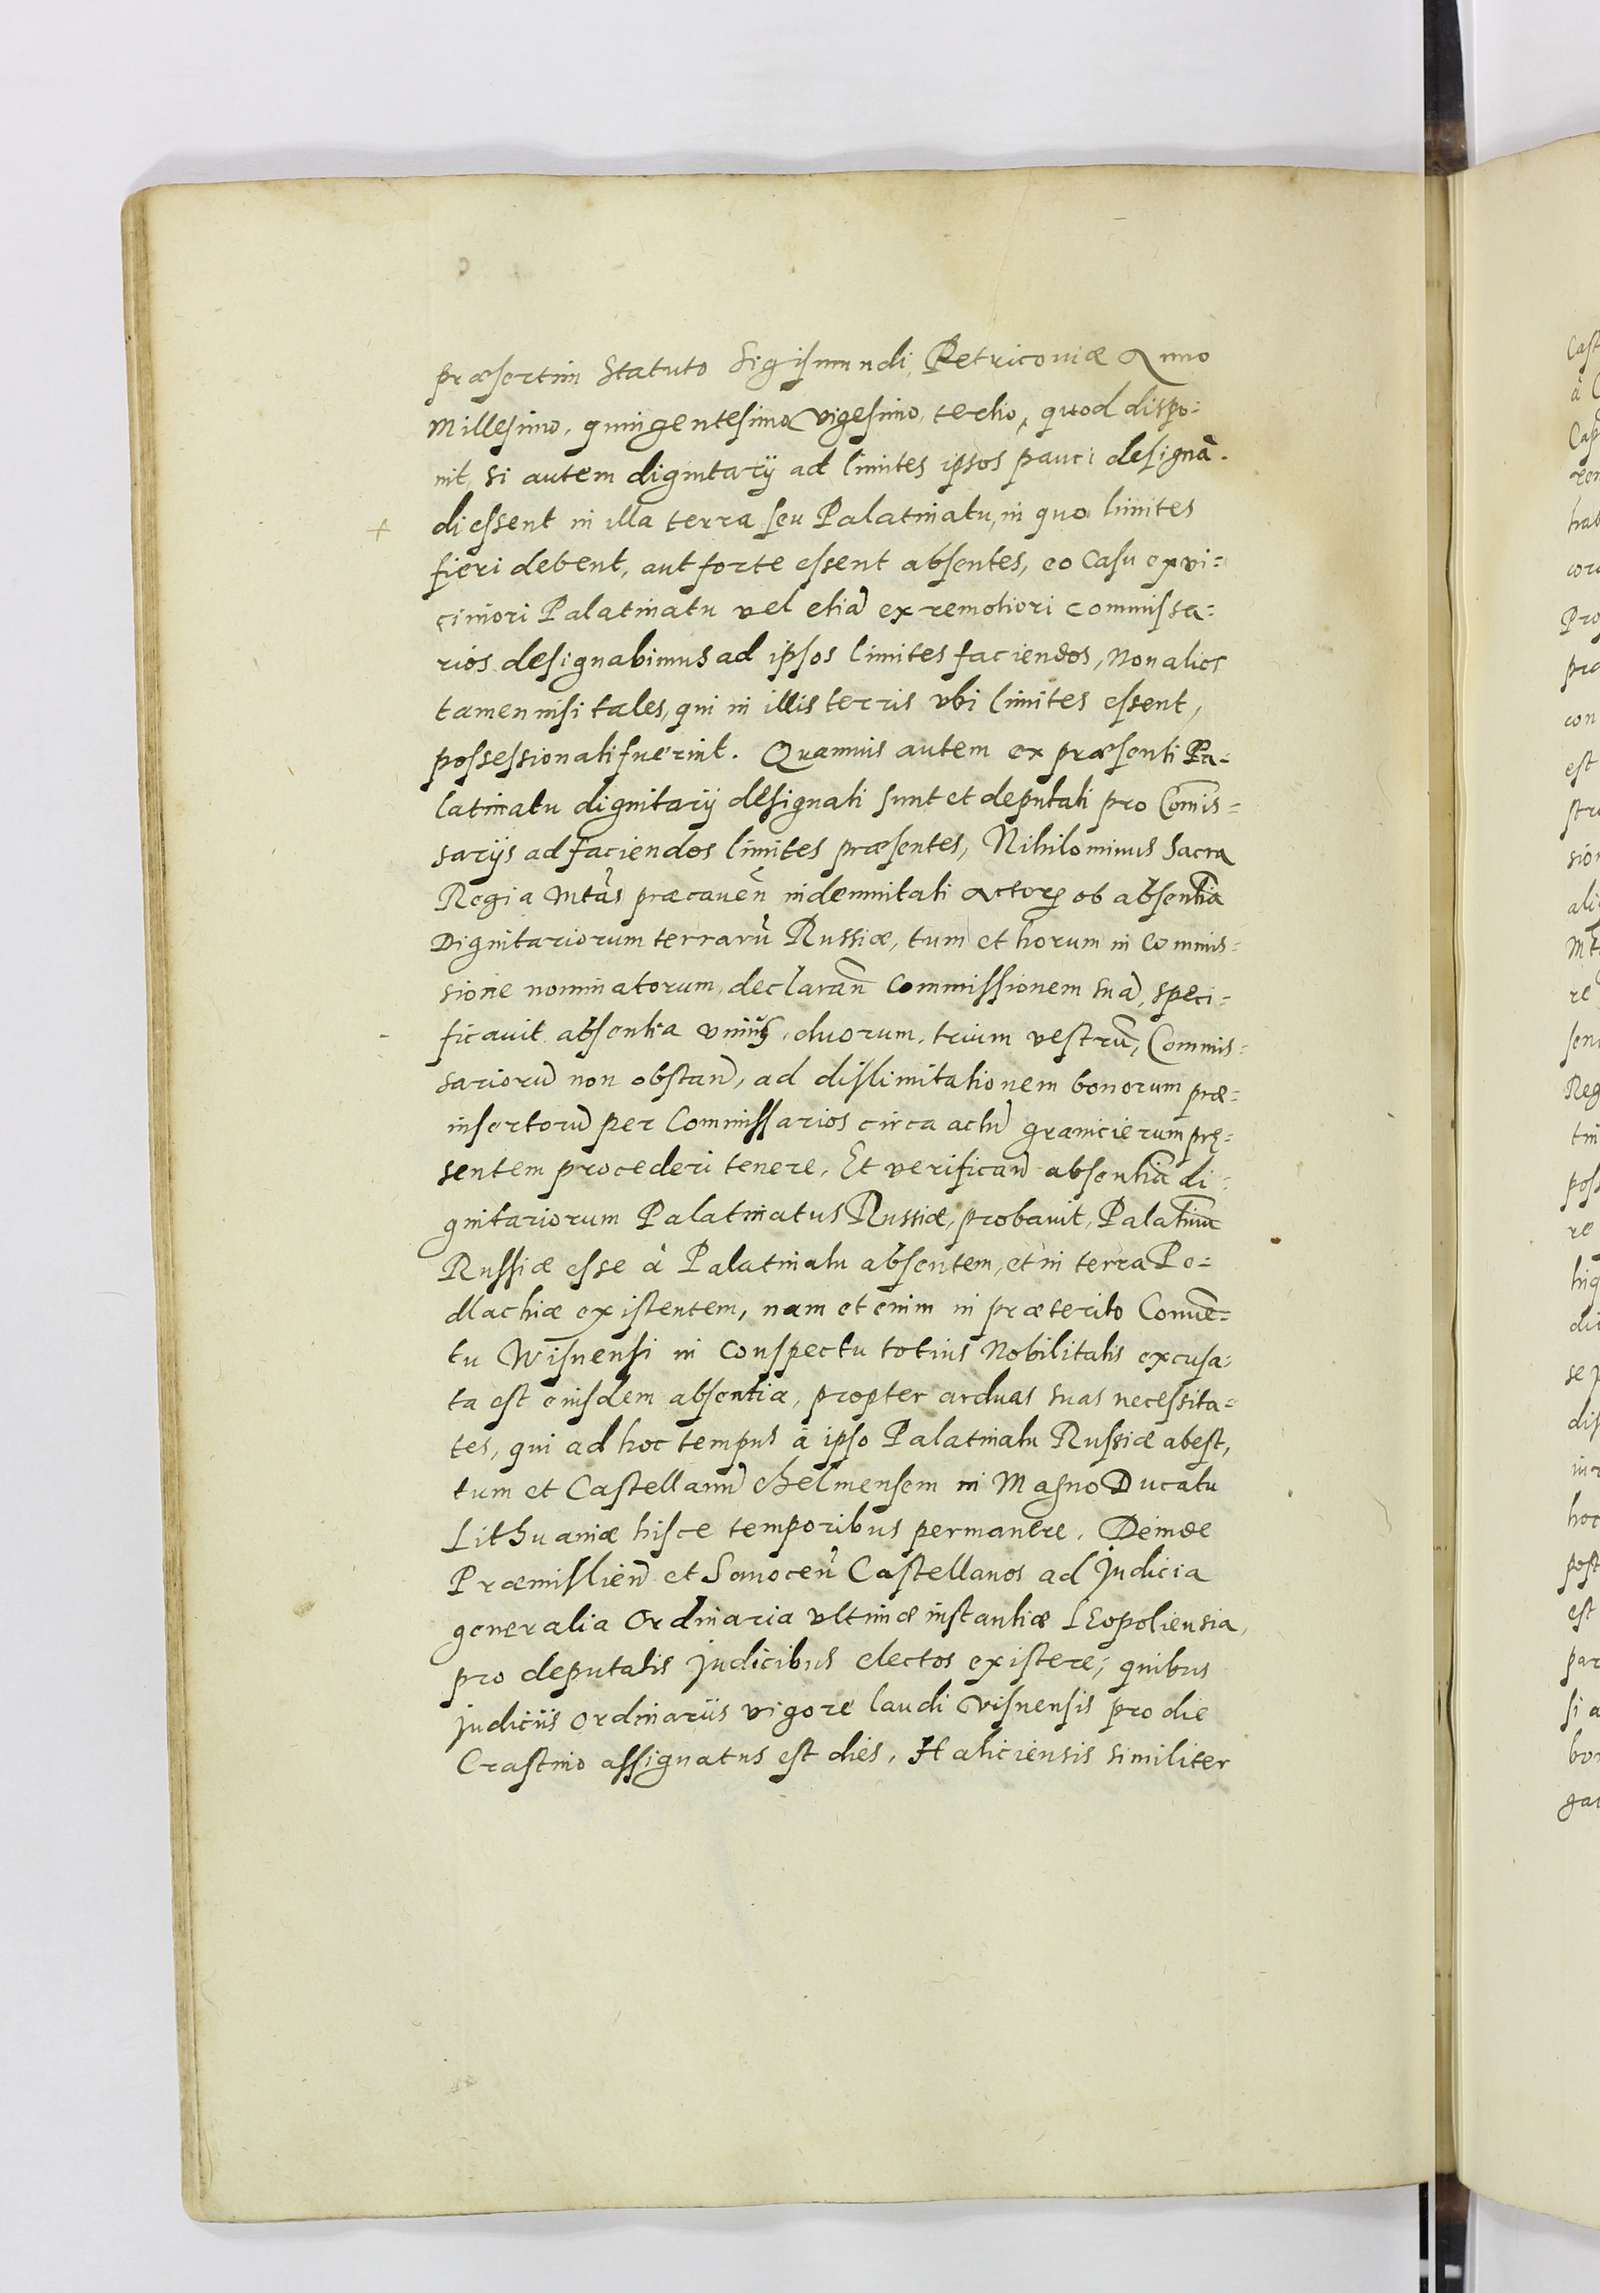 præsertim Statuto Sigismundi, Petricouiæ Anno
Millesimo, quingentesimo vigesimo, tertio, quod dispo-
nit, si autem dignitarij ad limites ipsos pauci designã-
di essent in illa terra seu Palatinatu, in quo limites
fieri debent, aut forte essent absentes, eo Casu ex vi-
ciniori Palatinatu vel etiã ex remotiori commissa-
rios designabimus ad ipsos limites faciendos, non alios
tamen nisi tales, qui in illis terris vbi limites essent,
possessionati fuerint. Quamuis autem ex præsenti Pa-
latinatu dignitarij designati sunt et deputati pro Com̃is-
sarijs ad faciendos limites præsentes, Nihilominus Sacra
Regia Mtãs præcauen̄ indemnitati Actorꝝ ob absentiã
Dignitariorum terrarũ Russiæ, tum et horum in Commis-
sione nominatorum, declaran̄ Commissionem suã, speci-
ficauit absentia vnius, duorum, trium vestrũ, Commis-
sariorũ non obstan̄, ad dislimitationem bonorum præ-
insertorũ per Commissarios circa actũ granicierum præ-
sentem procederi tenere, Et verifican̄ absentiã di-
gnitariorum Palatinatus Russiæ, probauit, Palatinũ
Russiæ esse à Palatinatu absentem, et in terra Po-
dlachiæ existentem, nam et enim in præterito Conuẽ-
tu Wisnensi in Conspectu totius Nobilitatis excusa-
ta est eiusdem absentia, propter arduas suas necessita-
tes, qui ad hoc tempus à ipso Palatinatu Russiæ abest,
tum et Castellanũ chelmensem in Magno Ducatu
Lithuaniæ hisce temporibus permanere. Deinde
Præmislien̄ et Sanocen̄ Castellanos ad Judicia
generalia Ordinaria vltimæ instantiæ Leopoliensia,
pro deputatis Judicibus electos existere; quibus
Judiciis Ordinariis vigore laudi visnensis pro die
Crastino assignatus est dies, Haliciensis similiter